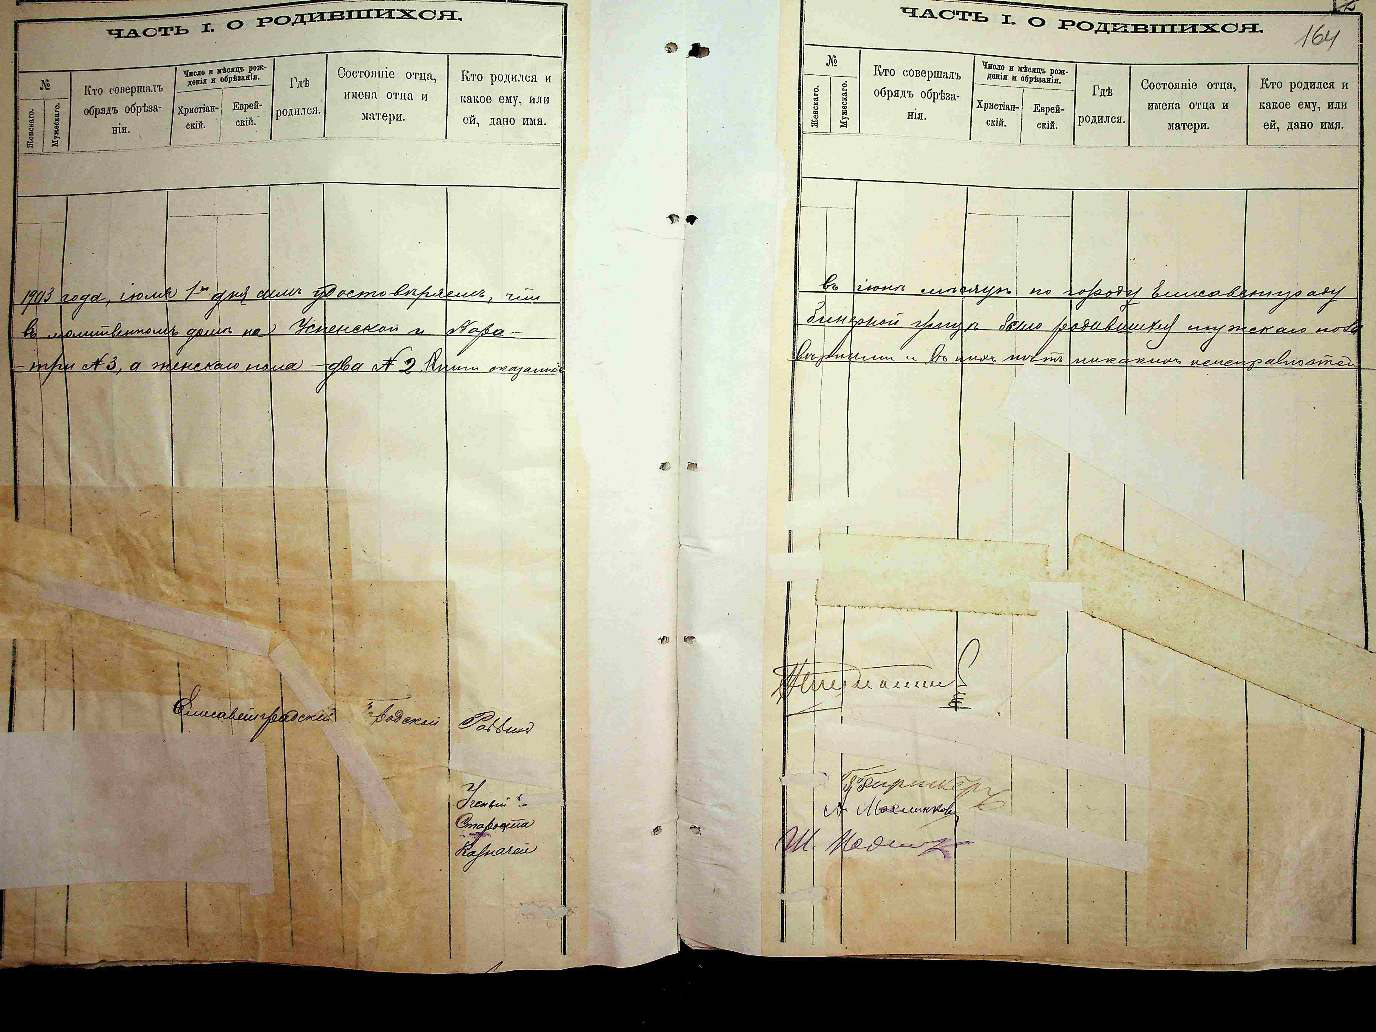 ЧАСТЬ I. О РОДИВШИХСЯ.
№
Женскаго.
Мужескаго.
Кто совершалъ
обрядъ обрѣза-
нія.
Число и мѣсяцъ рож-
денія и обрѣзанія.
Христіан-
скій.
Еврей-
скій.
Гдѣ
родился.
Состояніе отца,
имена отца и
матери.
Кто родился и
какое ему, или
ей, дано имя.
1903 года, іюля 1го дня симъ удостовѣряемъ, что
въ молитвенномъ домѣ на Успенской и
три № 3, а женскаго пола – два № 2. Книги оказались
Елисаветградскій Городской Раввинъ
Ученый
Староста
Казначей
ЧАСТЬ I. О РОДИВШИХСЯ.
164
№
Женскаго.
Мужескаго.
Кто совершалъ
обрядъ обрѣза-
нія.
Число и мѣсяцъ рож-
денія и обрѣзанія.
Христіан-
скій.
Еврей-
скій.
Гдѣ
родился.
Состояніе отца,
имена отца и
матери.
Кто родился и
какое ему, или
ей, дано имя.
въ іюнѣ мѣсяцѣ по городу Елисаветграду
было родившихся мужскаго пола
вѣрными и въ нихъ нѣтъ никакихъ неисправностей